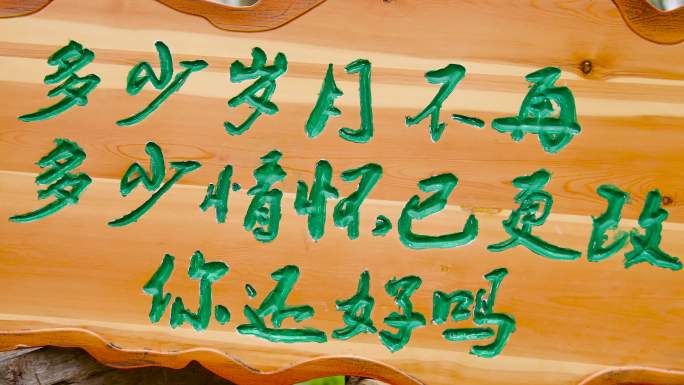 多少岁月不再
多少情怀已更改
你还好吗